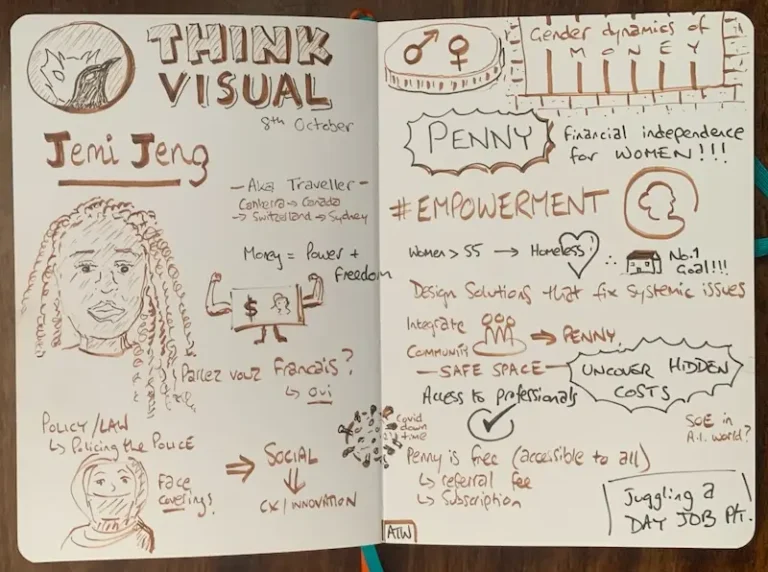 THINK
VISUAL
8th October
Jemi Jeng
- AKA Traveller -
Canberra → Canada
→ Switzerland → Sydney
Money = Power +
Freedom
$
Parlez vouz Francais?
↳ Oui
POLICY/LAW
↳ Policing the POLICE
Face
coverings!
⇒ SOCIAL
⇓
CX / INNOVATION
♂ ♀
Gender dynamics of
MONEY
PENNY
Financial independence
for WOMEN!!!
#EMPOWERMENT
Women > 55 → Homeless!
∴
No.1
Goal!!!
Design Solutions that fix systemic issues
Integrate
Community
⇒ PENNY
- SAFE SPACE -
UNCOVER HIDDEN
COSTS
Access to professionals
Covid
down
time
SOE in
A.I. world?
Penny is free (accessible to all)
↳ referral fee
↳ Subscription
Juggling a
DAY JOB P/T.
ATW